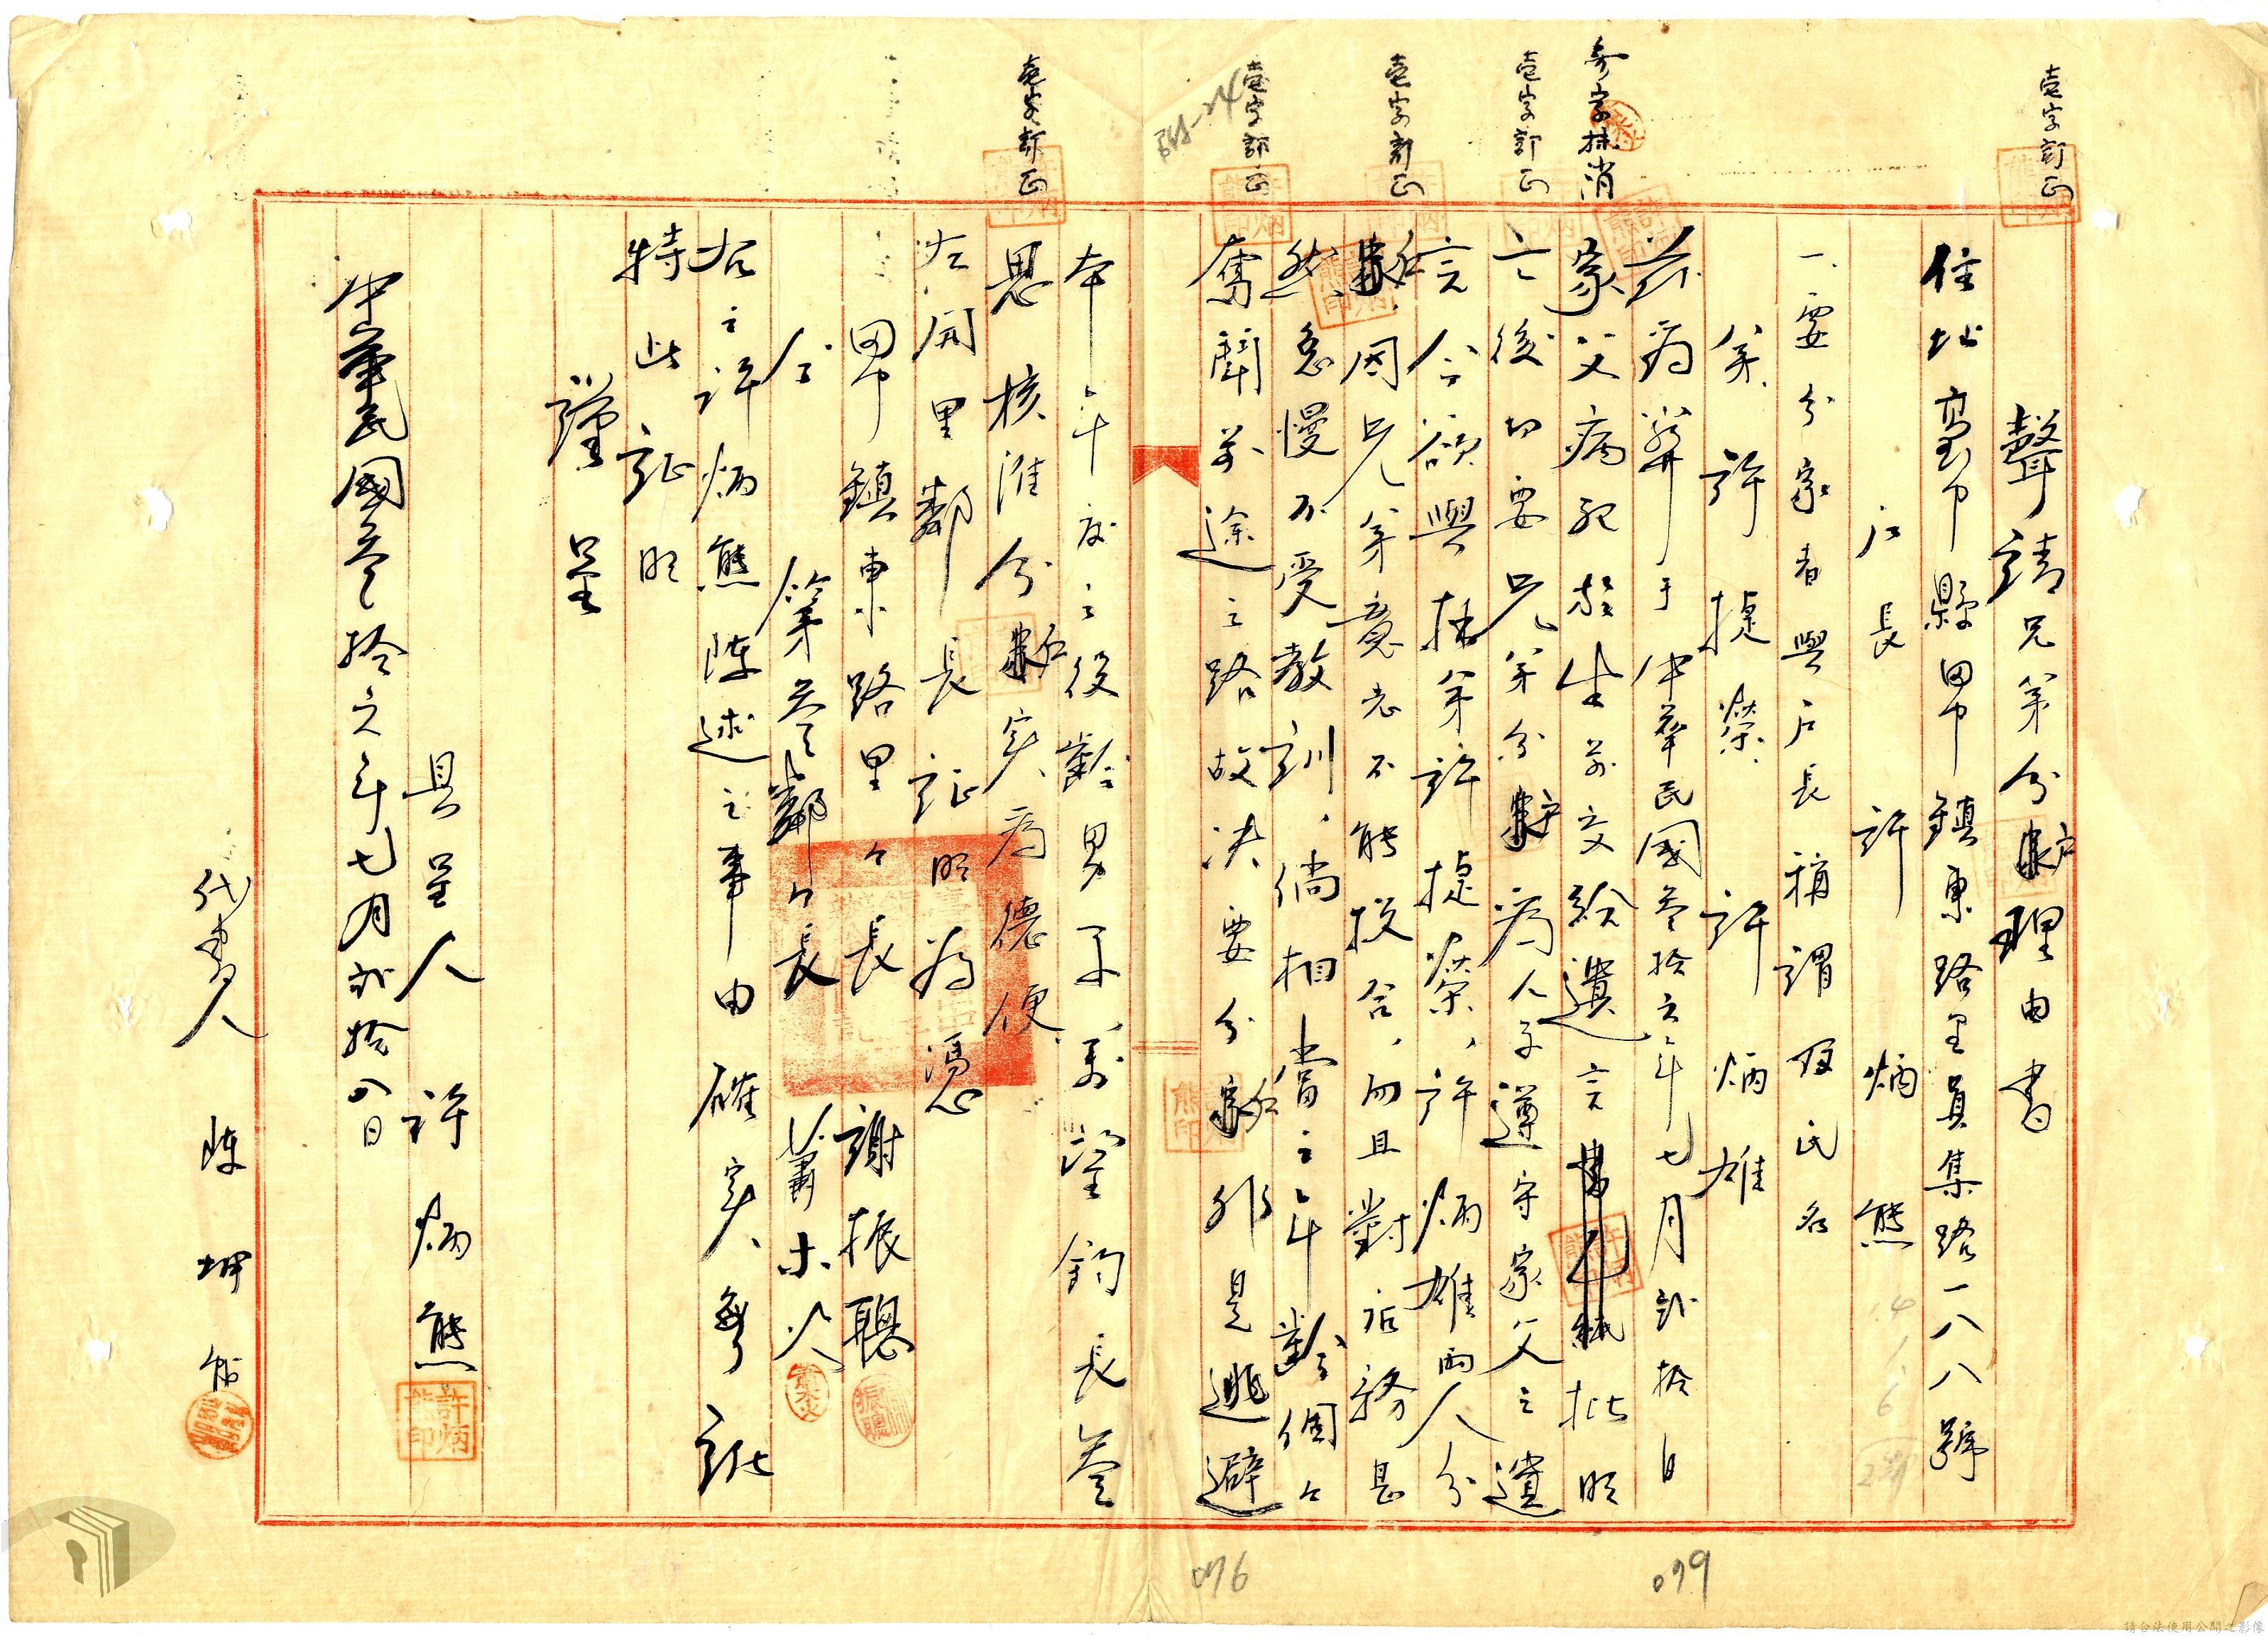 聲請兄弟分戶理由書
住址臺中縣田中鎮東路里員集路一八八號
戶長 許炳熊
一、要分家者與戶長稱謂及氏名
弟 許捷榮 許炳雄
茲為弊于中華民國叁拾六年七月弍拾日
家父病死於生前交給遺言 批明
亡後切要兄弟分戶為人子遵守家父之遺
言今欲與抽弟許捷榮、許炳雄兩人分
戶因兄弟意志不能投合、而且對店務甚
然怠慢不受教訓、倘相當之年齡個々
奮鬪前途之路故決要分戶非是逃避
本年度之役齡男子萬望鈞長叁
思核准分戶實為德便
左開里鄰長証明為憑
田中鎮東路里々長 謝振聰
仝 第叁鄰々長 蕭木火
右之許炳熊陳述之事由確實無訛
特此証明
謹呈
具呈人 許炳熊
中華民國叁拾六年七月弍拾八日
代書人 陳坤
壹字訂正
叁字抹消
壹字訂正
壹字訂正
壹字訂正
壹字訂正
許炳熊印
振聰
076
079
請合法使用公開之影像